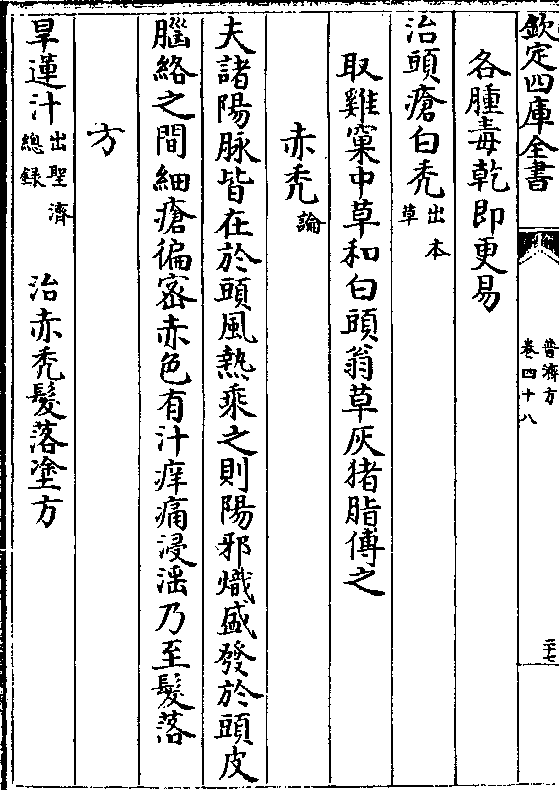 欽定四庫全書
普濟方
卷四十八
二十七
各腫毒乾即更易
治頭瘡白禿出本草
取雞窠中草和白頭翁草灰猪脂傅之
赤禿論
夫諸陽脉皆在於頭風熱乘之則陽邪熾盛發於頭皮
腦絡之間細瘡徧密赤色有汁痒痛浸淫乃至髮落
方
旱蓮汁出聖濟總錄 治赤禿髮落塗方